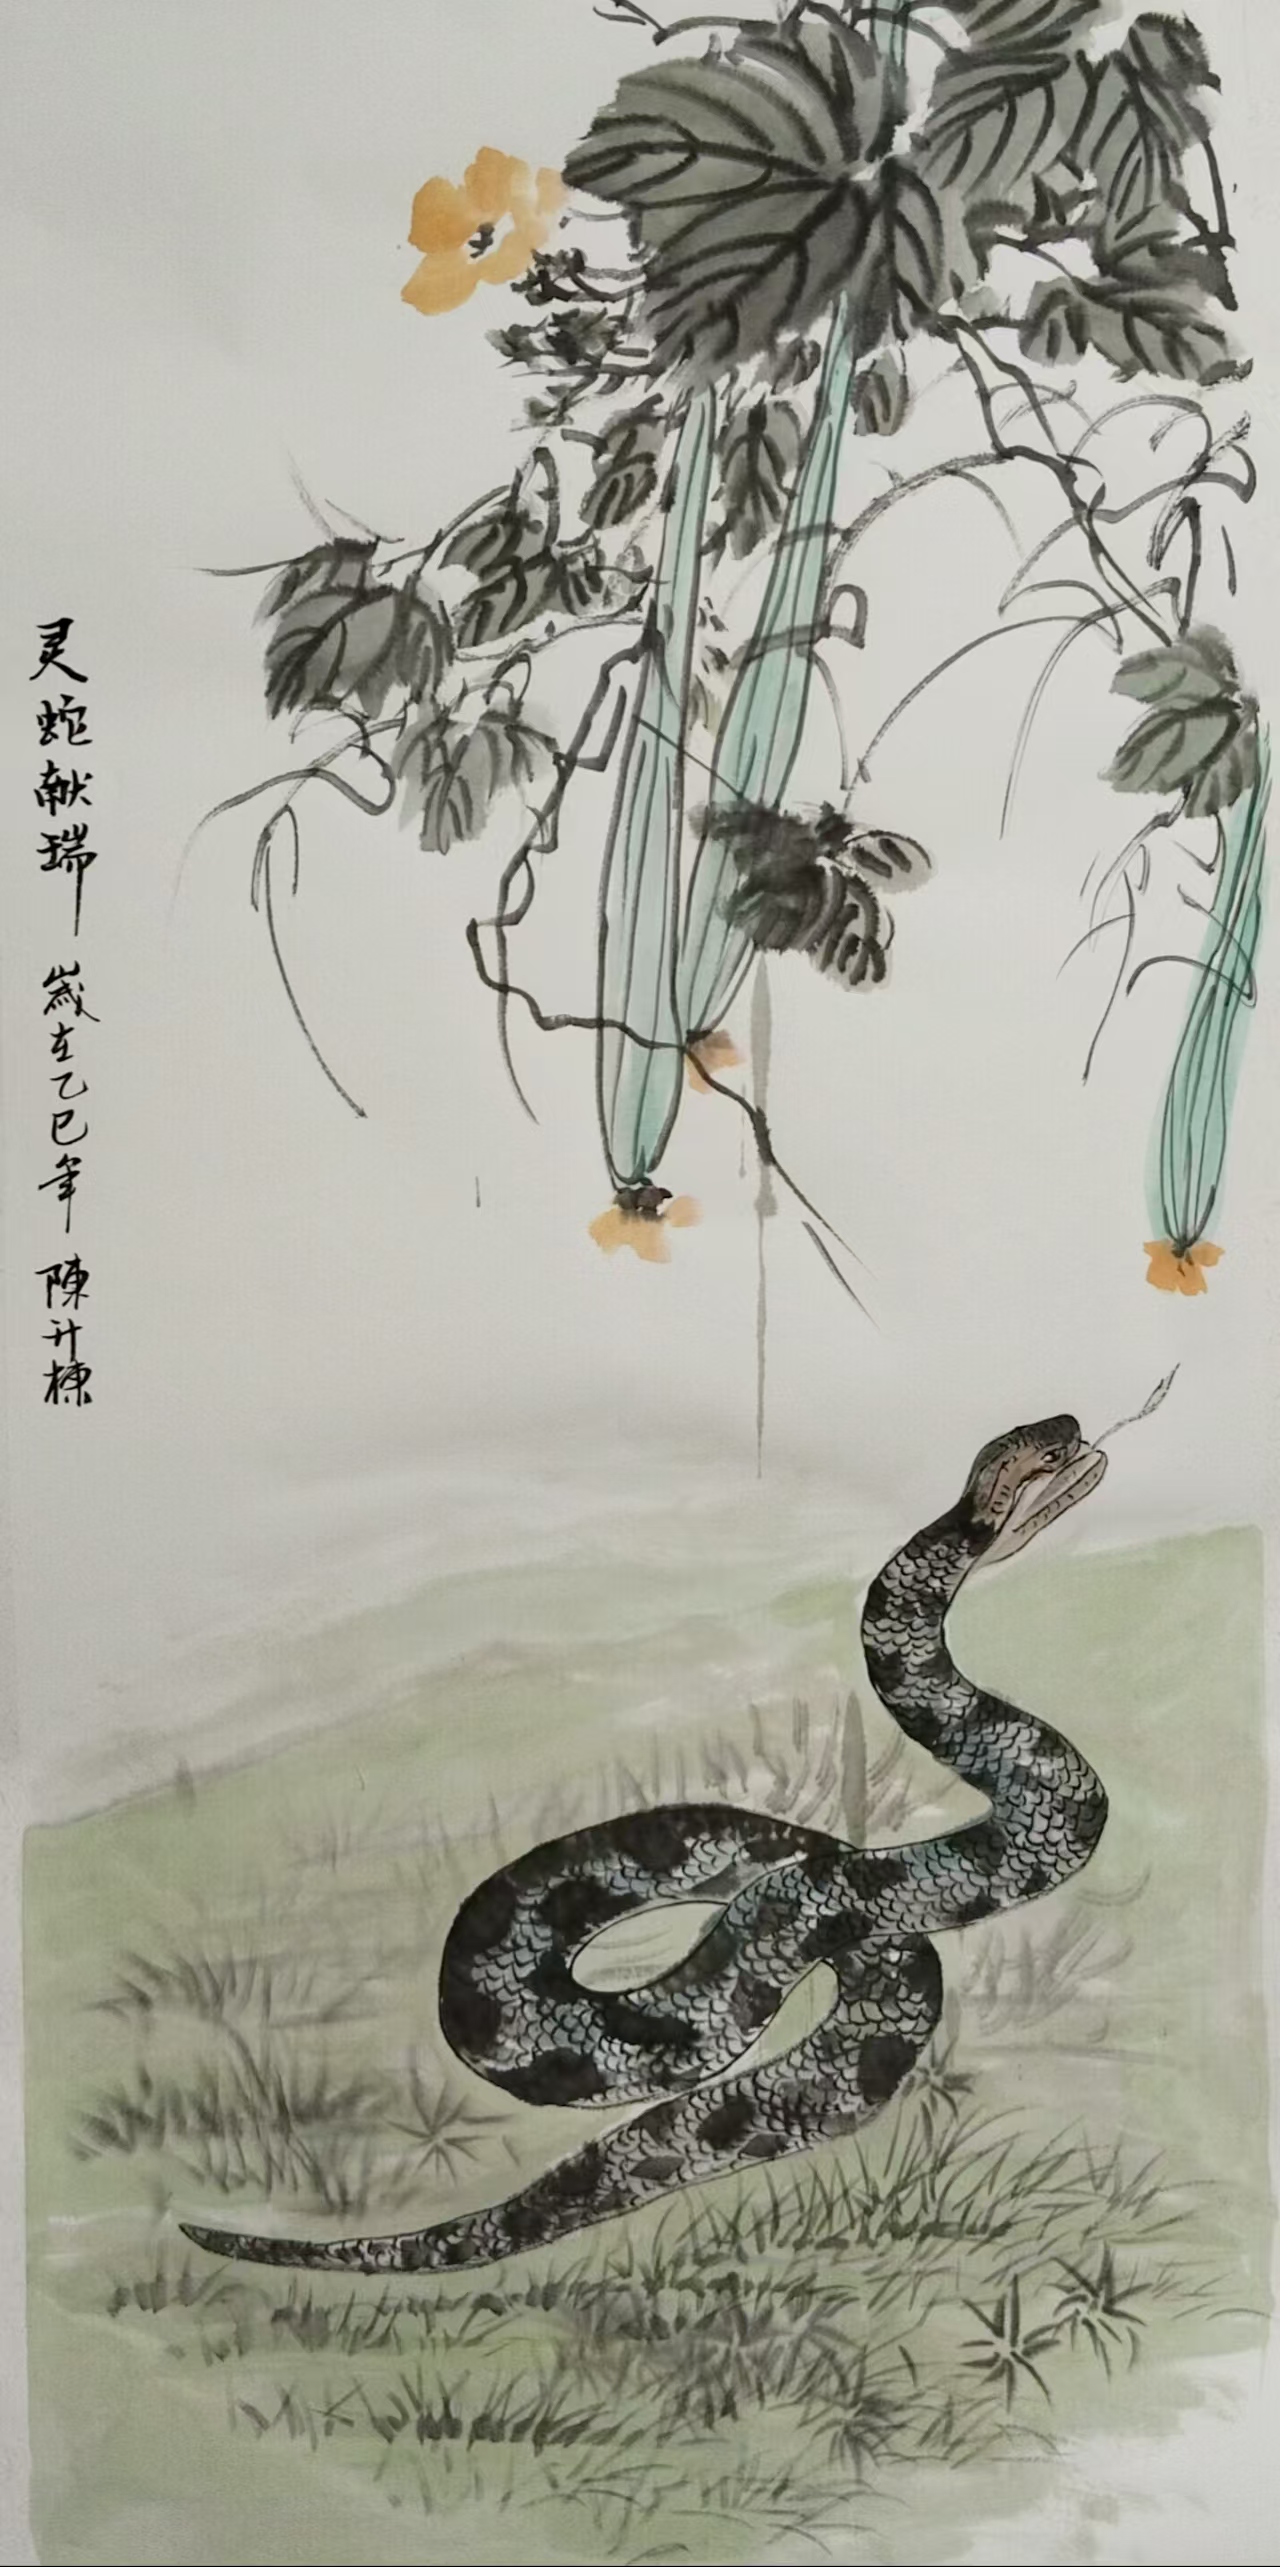 灵蛇献瑞 歲在乙巳年 陳升棟